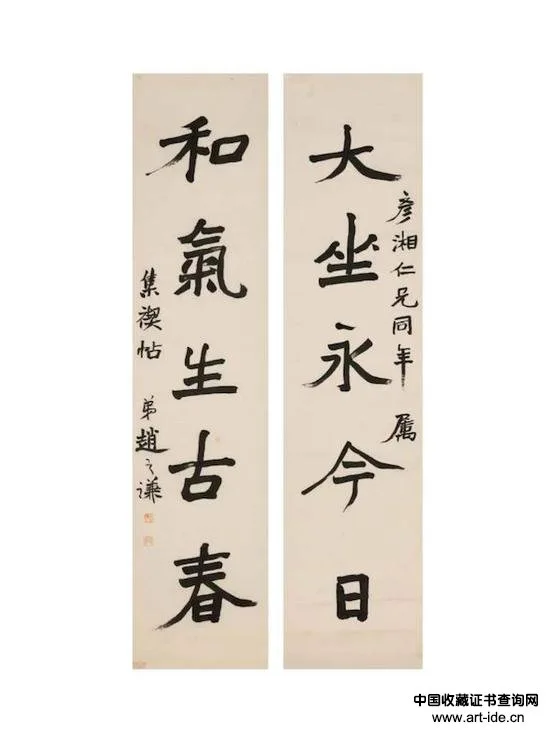 彦湘仁兄同年 属
大坐永今日
和氣生古春
集禊帖 弟趙之谦
中国收藏证书查询网
www.art-ide.cn